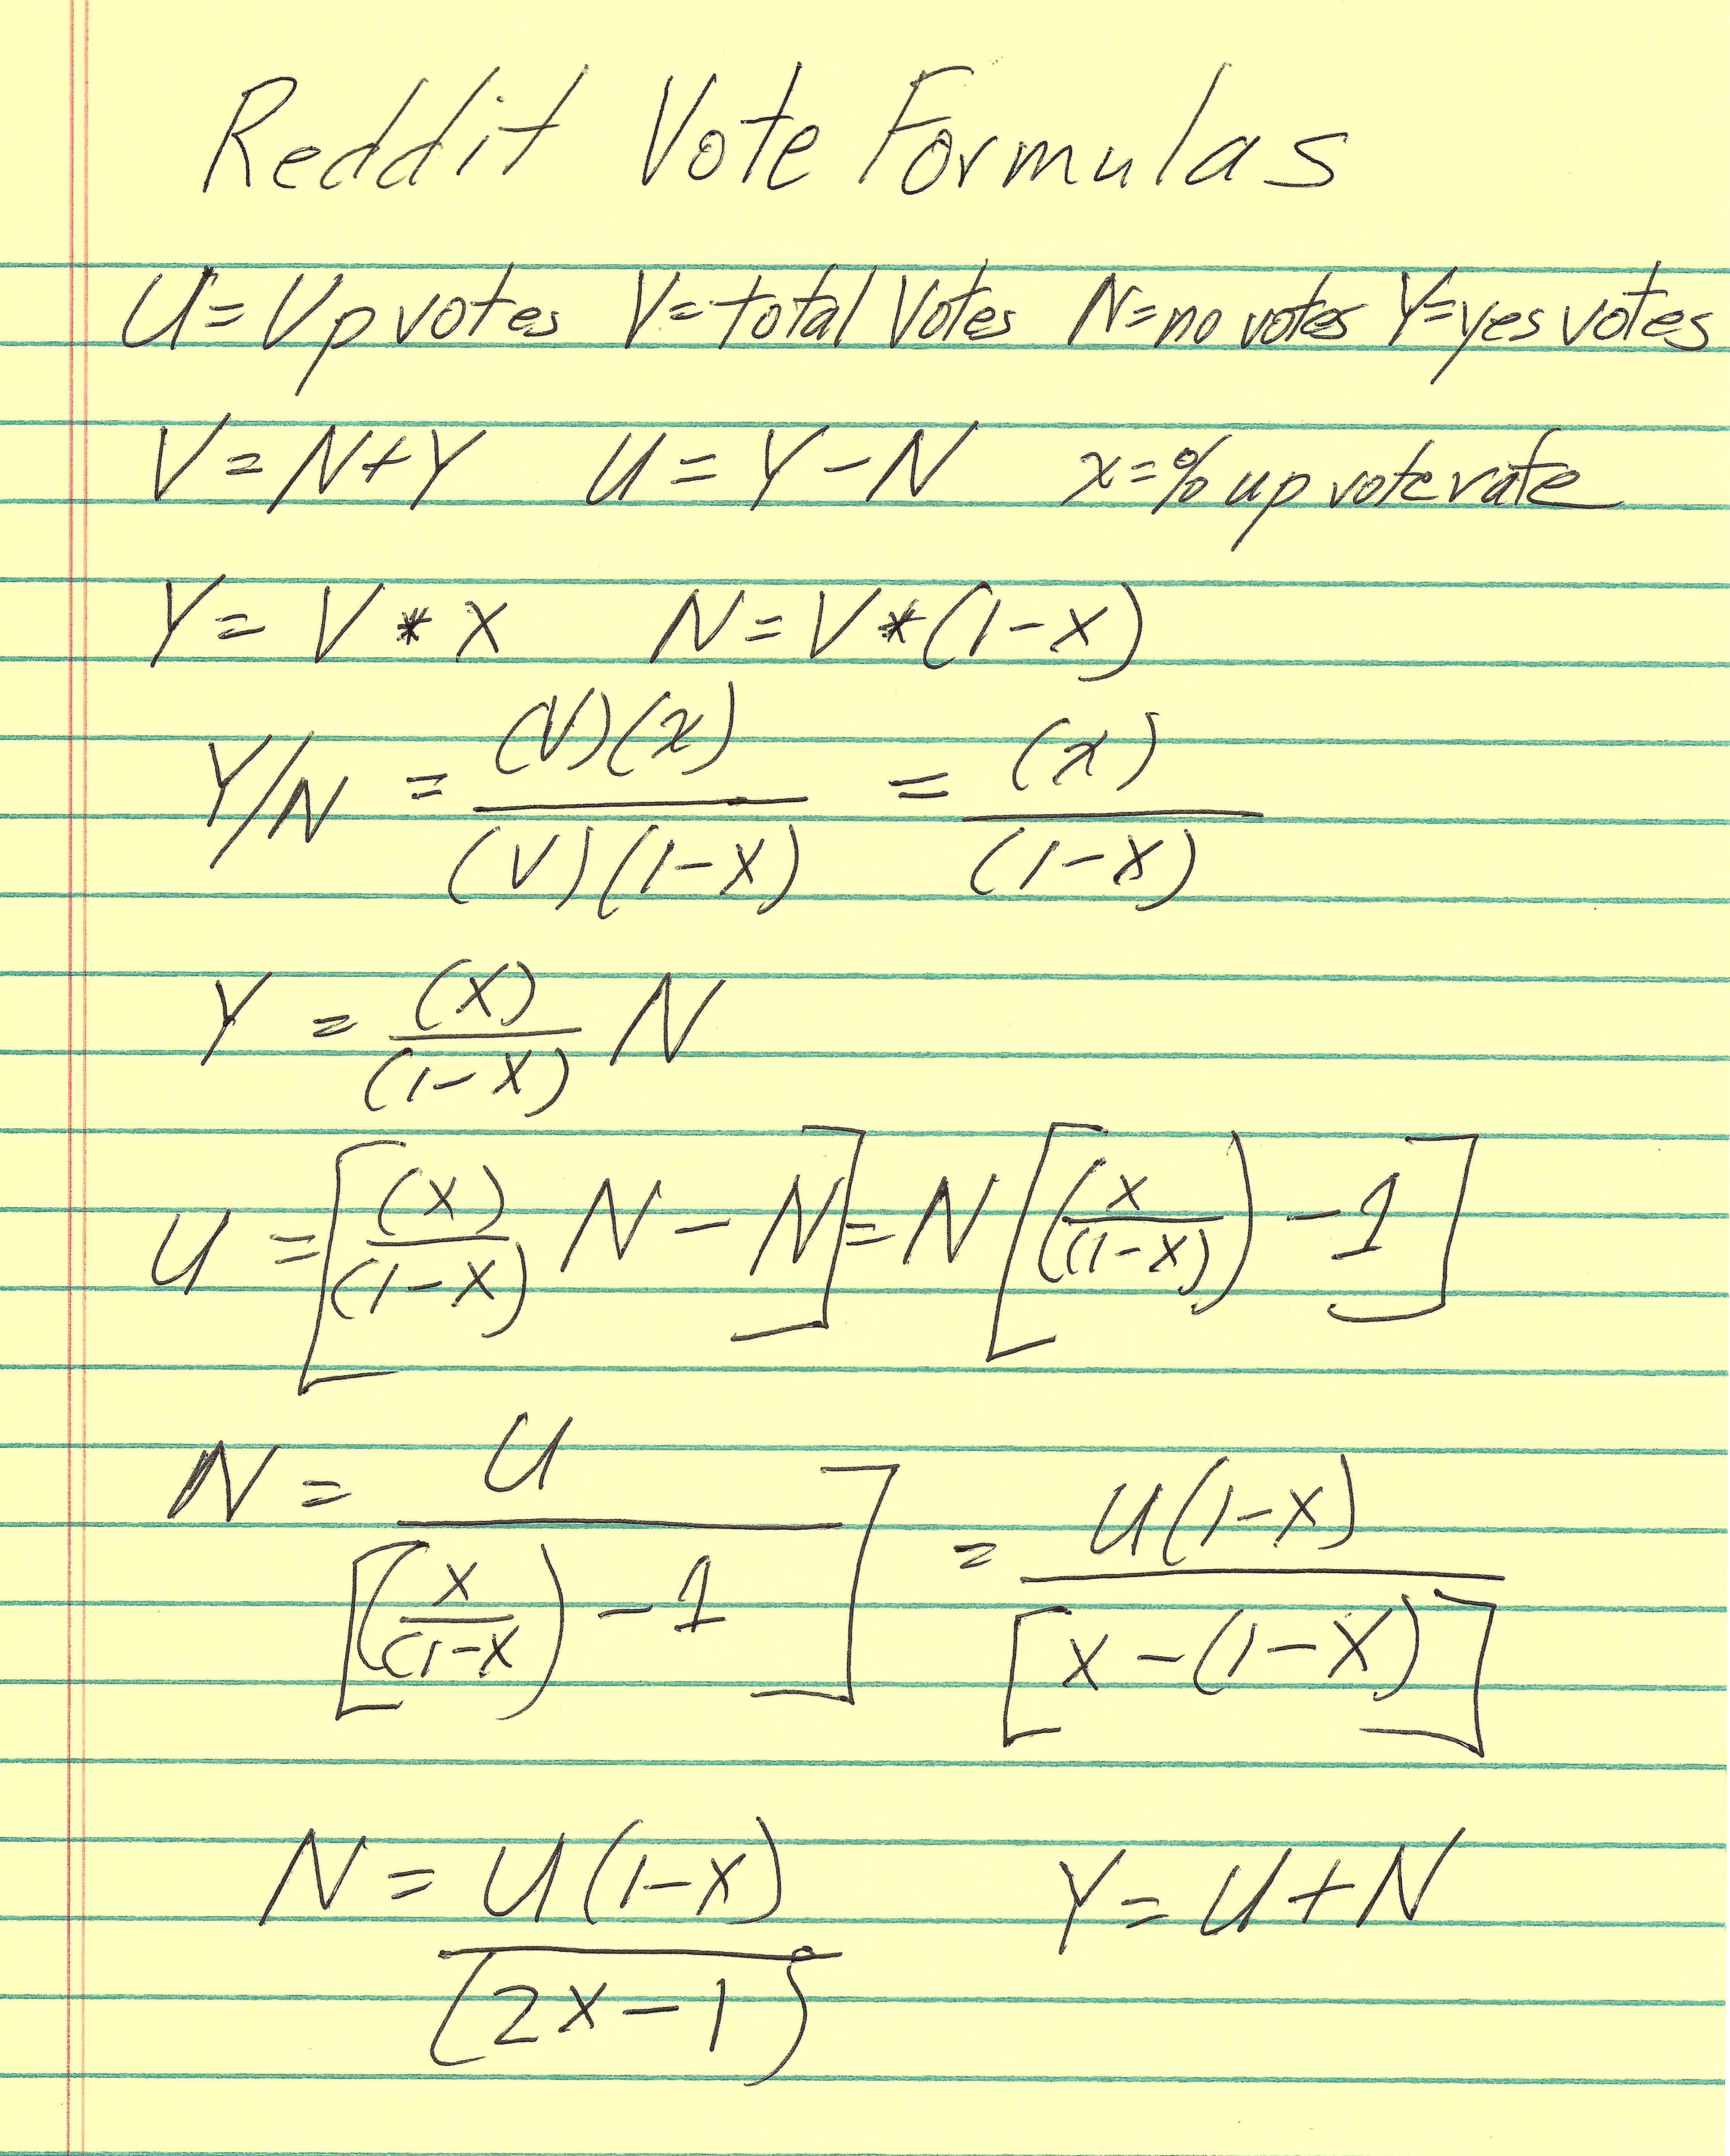 Reddit Vote Formulas
U=Up votes V=total Votes N=no votes Y=yes votes
V=N+Y U=Y-N x=% up vote rate
Y=V*X N=V*(1-X)
Y/N = (V)(x)/(V)(1-X) = (x)/(1-X)
Y = (X)/(1-X) N
U = [(X)/(1-X) N - N] = N[(X/(1-X)) - 1]
N = U/[(X/(1-X) - 1] = U(1-X)/[X-(1-X)]
N = U(1-X)/(2X-1) Y=U+N